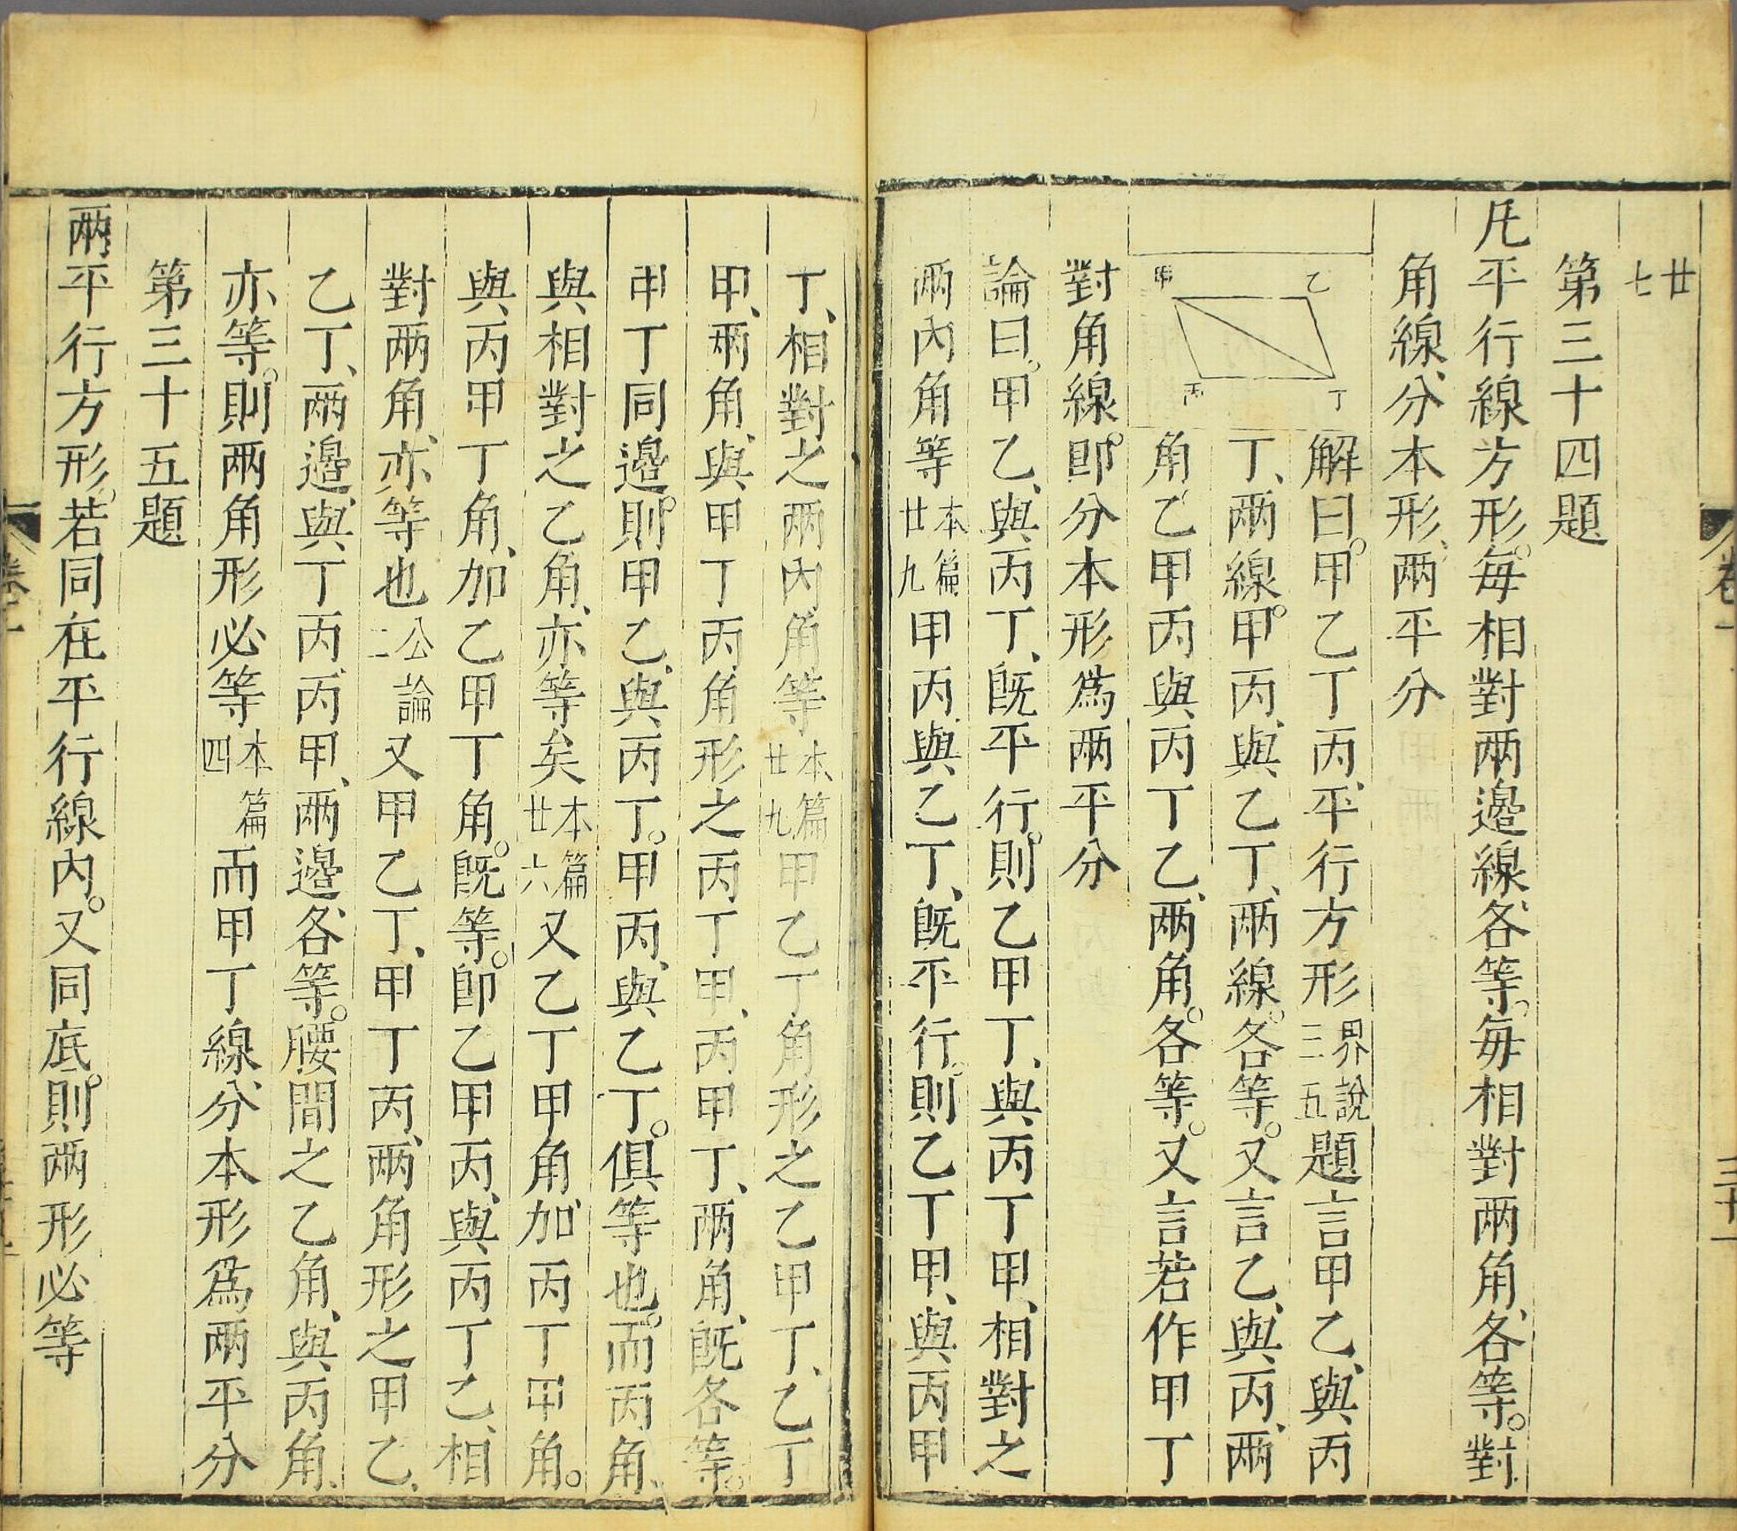 廿七
第三十四題
凡平行線方形。每相對兩邊線、各等。每相對兩角、各等。對
角線、分本形、兩平分
甲
乙
丙
丁
解曰。甲乙丁丙、平行方形界說三五題言甲乙、與丙
丁、兩線。甲丙、與乙丁、兩線。各等。又言乙、與丙、兩
角乙甲丙與丙丁乙、兩角。各等。又言若作甲丁
對角線。即分本形爲兩平分
論曰。甲乙、與丙丁、旣平行。則乙甲丁、與丙丁甲、相對之
兩內角等本篇廿九甲丙、與乙丁、旣平行。則乙丁甲、與丙甲
丁、相對之兩內角等本篇廿九甲乙丁角形之乙甲丁、乙丁
甲、兩角、與甲丁丙角形之丙丁甲、丙甲丁、兩角、旣各等。
甲丁同邊。則甲乙、與丙丁。甲丙、與乙丁。俱等也。而丙角、
與相對之乙角、亦等矣本篇廿六又乙丁甲角加丙丁甲角。
與丙甲丁角、加乙甲丁角。旣等。即乙甲丙、與丙丁乙、相
對兩角、亦等也公論二又甲乙丁、甲丁丙、兩角形之甲乙、
乙丁、兩邊、與丁丙、丙甲、兩邊、各等。腰間之乙角、與丙角、
亦等。則兩角形必等本篇四而甲丁線、分本形爲兩平分
第三十五題
兩平行方形。若同在平行線內。又同底。則兩形必等